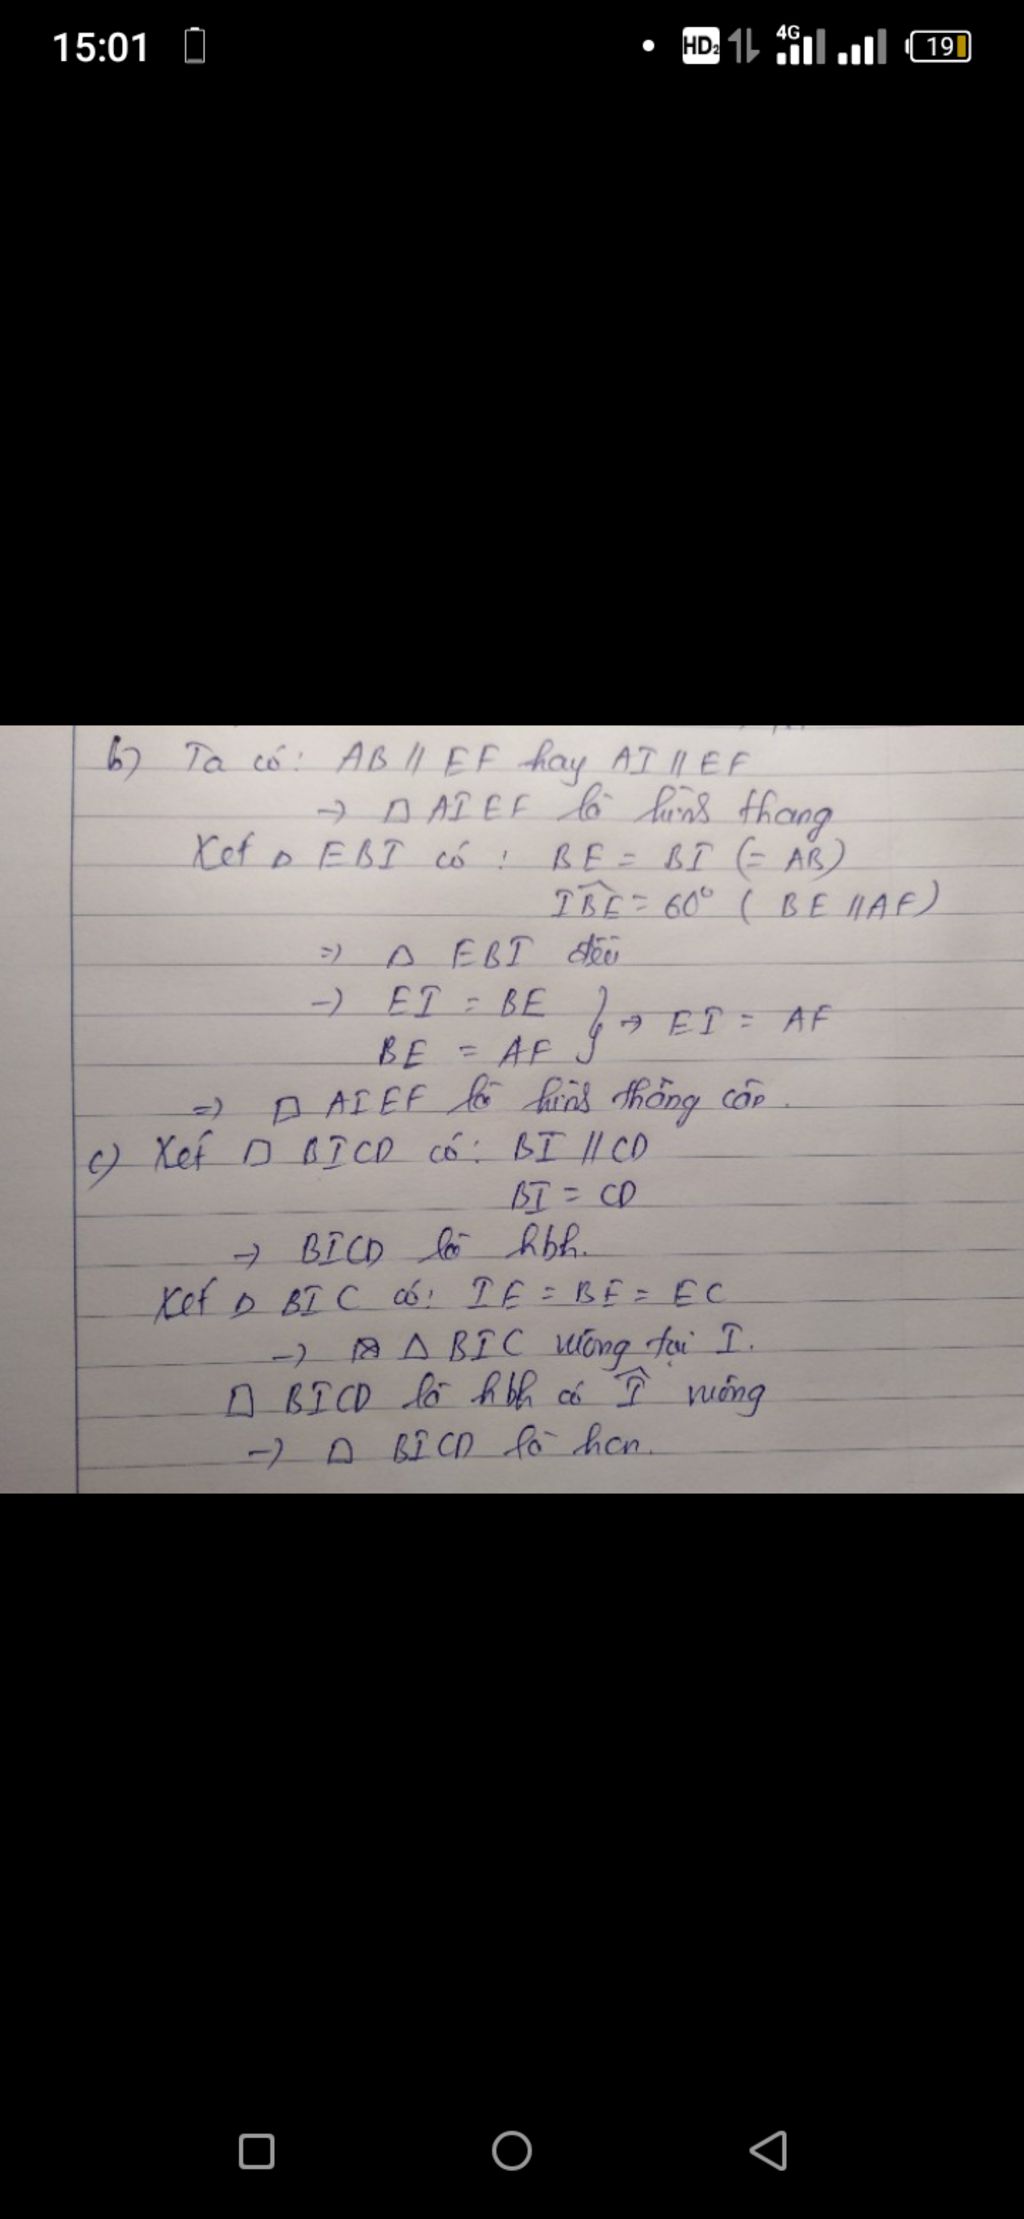 15:01
HD2 4G 19
b) Ta có: AB // EF hay AI // EF
→ □ AIEF là hình thang
Xét △ EBI có : BE = BI (= AB)
IBE = 60° ( BE // AF)
=> △ EBI đều
→ EI = BE
} → EI = AF
BE = AF
=> □ AIEF là hình thang cân.
c) Xét □ BICD có: BI // CD
BI = CD
→ BICD là hbh.
Xét △ BIC có: IE = BE = EC
→ △ BIC vuông tại I.
□ BICD là hbh có Î vuông
→ □ BICD là hcn.